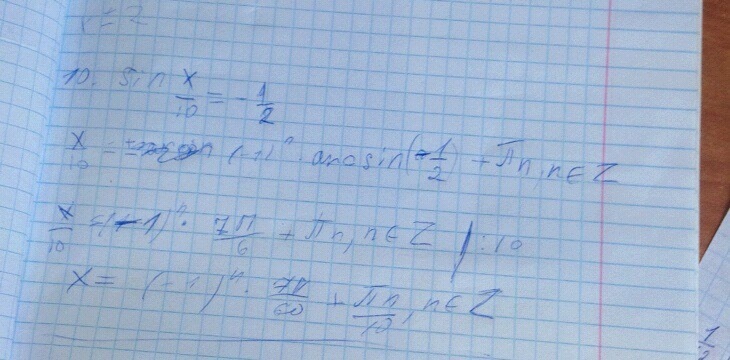 10. sin x/10 = -1/2
x/10 = (-1)ⁿ · arcsin(-1/2) + πn, n ∈ Z
x/10 = (-1)ⁿ · 7π/6 + πn, n ∈ Z | :10
x = (-1)ⁿ · 7π/60 + πn/10, n ∈ Z